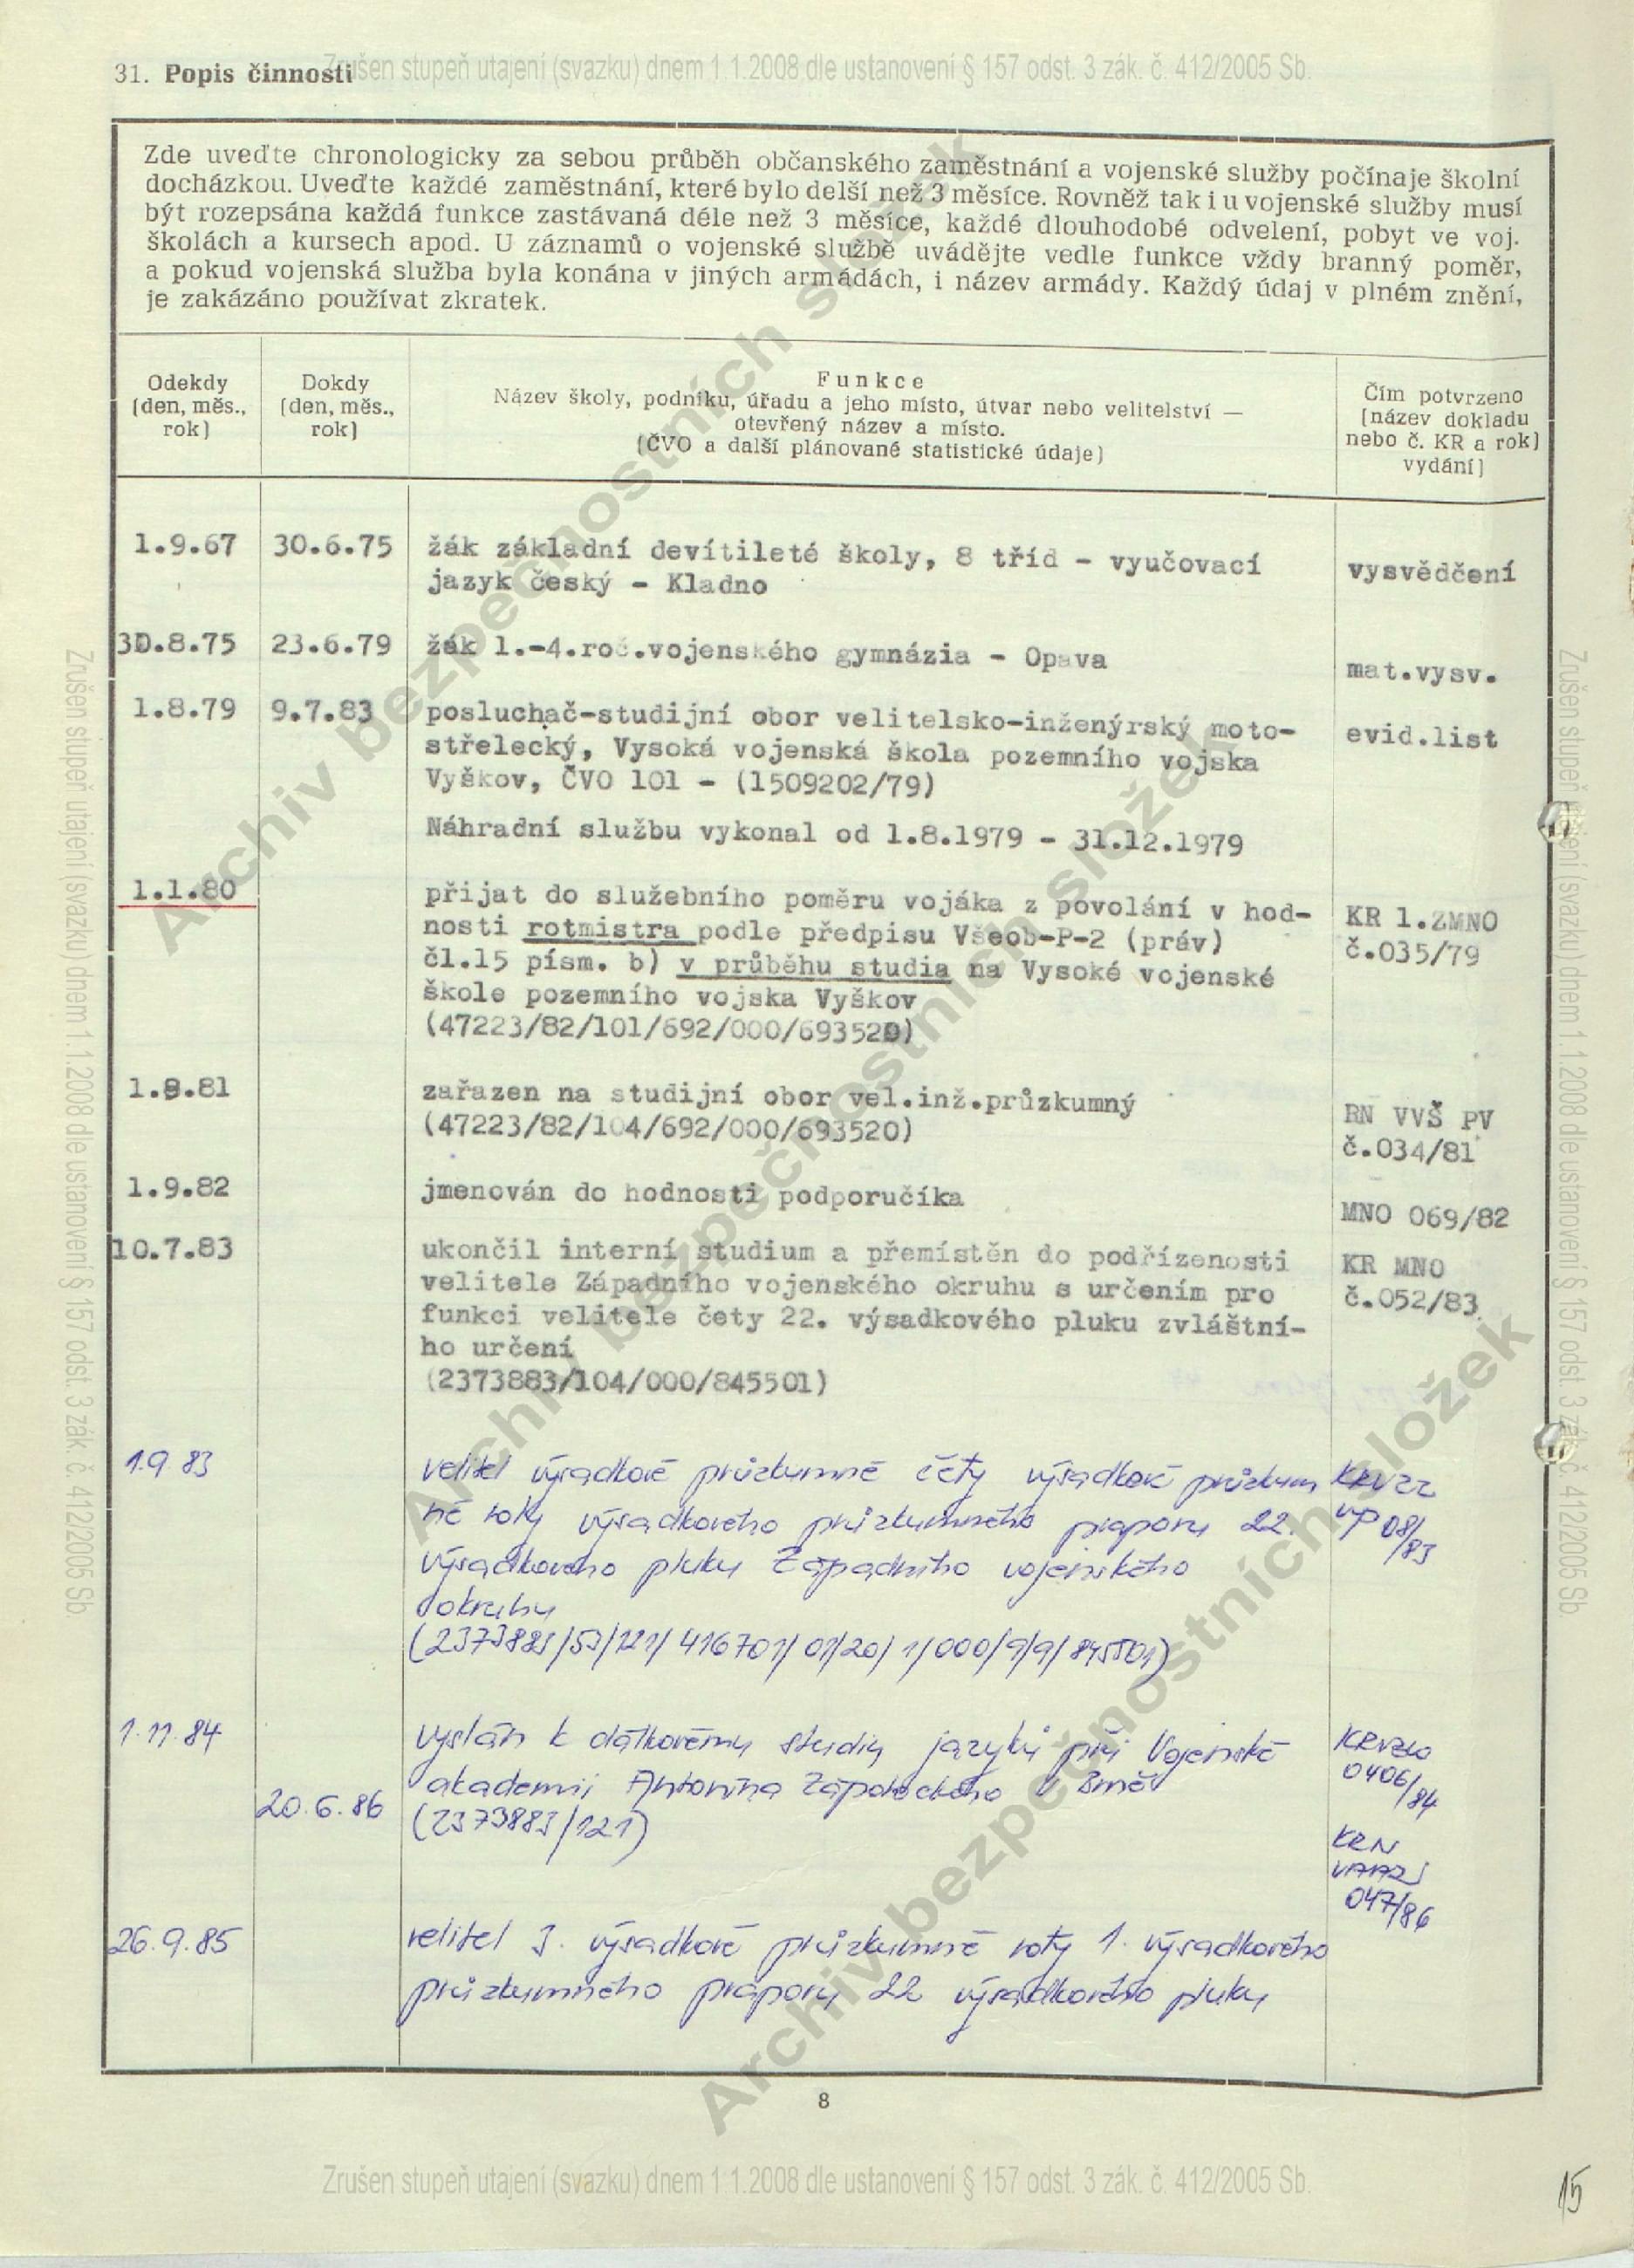 Zrušen stupeň utajení (svazku) dnem 1.1.2008 dle ustanovení § 157 odst. 3 zák. č. 412/2005 Sb.
31. Popis činnosti
Zde uveďte chronologicky za sebou průběh občanského zaměstnání a vojenské služby počínaje školní
docházkou. Uveďte každé zaměstnání, které bylo delší než 3 měsíce. Rovněž tak i u vojenské služby musí
být rozepsána každá funkce zastávaná déle než 3 měsíce, každé dlouhodobé odvelení, pobyt ve voj.
školách a kursech apod. U záznamů o vojenské službě uvádějte vedle funkce vždy branný poměr,
a pokud vojenská služba byla konána v jiných armádách, i název armády. Každý údaj v plném znění,
je zakázáno používat zkratek.
Odekdy
(den, měs.,
rok)
Dokdy
(den, měs.,
rok)
Funkce
Název školy, podniku, úřadu a jeho místo, útvar nebo velitelství —
otevřený název a místo.
(ČVO a další plánované statistické údaje)
Čím potvrzeno
(název dokladu
nebo č. KR a rok)
vydání)
1.9.67 30.6.75 žák základní devítileté školy, 8 tříd - vyučovací
jazyk český - Kladno
vysvědčení
30.8.75 23.6.79 žák 1.-4.roč.vojenského gymnázia - Opava
mat.vysv.
1.8.79 9.7.83 posluchač-studijní obor velitelsko-inženýrský moto-
střelecký, Vysoká vojenská škola pozemního vojska
Vyškov, ČVO 101 - (1509202/79)
evid.list
Náhradní službu vykonal od 1.8.1979 - 31.12.1979
1.1.80 přijat do služebního poměru vojáka z povolání v hod-
nosti rotmistra podle předpisu Všeob-P-2 (práv)
čl.15 písm. b) v průběhu studia na Vysoké vojenské
škole pozemního vojska Vyškov
(47223/82/101/692/000/693520)
KR 1.ZMNO
č.035/79
1.9.81 zařazen na studijní obor vel.inž.průzkumný
(47223/82/104/692/000/693520)
RN VVŠ PV
č.034/81
1.9.82 jmenován do hodnosti podporučíka
MNO 069/82
10.7.83 ukončil interní studium a přemístěn do podřízenosti
velitele Západního vojenského okruhu s určením pro
funkci velitele čety 22. výsadkového pluku zvláštní-
ho určení
(2373883/104/000/845501)
KR MNO
č.052/83
1.9.83 velitel výsadkové průzkumné čety výsadkové průzkum
né roty výsadkového průzkumného praporu 22.
výsadkového pluku Západního vojenského
okruhu
(2373883/53/121/416701/01/20/1/000/9/9/845501)
KRV22
VP 08/
83
1.11.84 vyslán k dálkovému studiu jazyků při Vojenské
akademii Antonína Zápotockého v Brně
20.6.86 (2373883/121)
KRVZVO
0406/
84
KRN
VAAZ
047/86
26.9.85 velitel 3. výsadkové průzkumné roty 1. výsadkového
průzkumného praporu 22 výsadkového pluku
8
Zrušen stupeň utajení (svazku) dnem 1.1.2008 dle ustanovení § 157 odst. 3 zák. č. 412/2005 Sb.
15
Zrušen stupeň utajení (svazku) dnem 1.1.2008 dle ustanovení § 157 odst. 3 zák. č. 412/2005 Sb.
Zrušen stupeň utajení (svazku) dnem 1.1.2008 dle ustanovení § 157 odst. 3 zák. č. 412/2005 Sb.
Archiv bezpečnostních složek
Archiv bezpečnostních složek
Archiv bezpečnostních složek